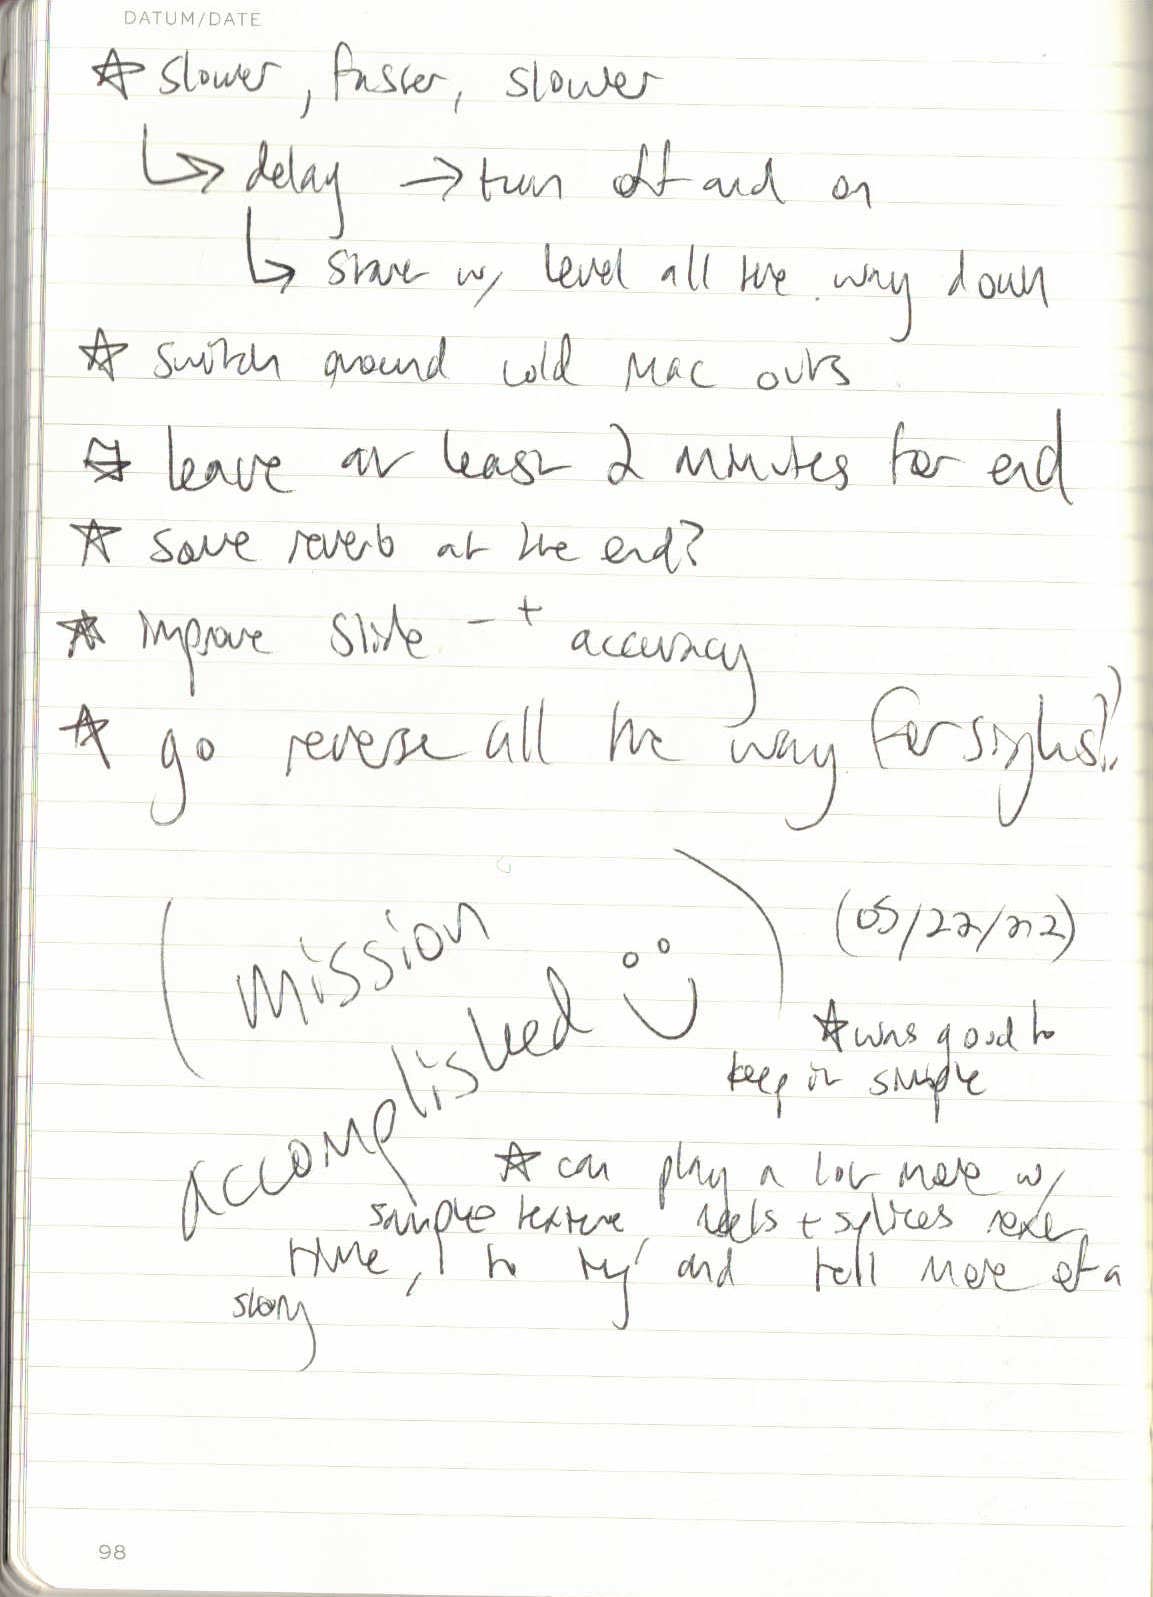 DATUM/DATE
☆ slower, faster, slower
↳ delay → turn off and on
↳ start w/ level all the way down
☆ switch around cold mac outs
☆ leave at least 2 minutes for end
☆ save reverb at the end?
☆ improve slide - + accuracy
☆ go reverse all the way for
(mission
accomplished ☺)
(05/22/22)
☆ was good to
keep it simple
☆ can play a lot more w/
sample texture, reels + splices next
time, to try and tell more of a
story
98